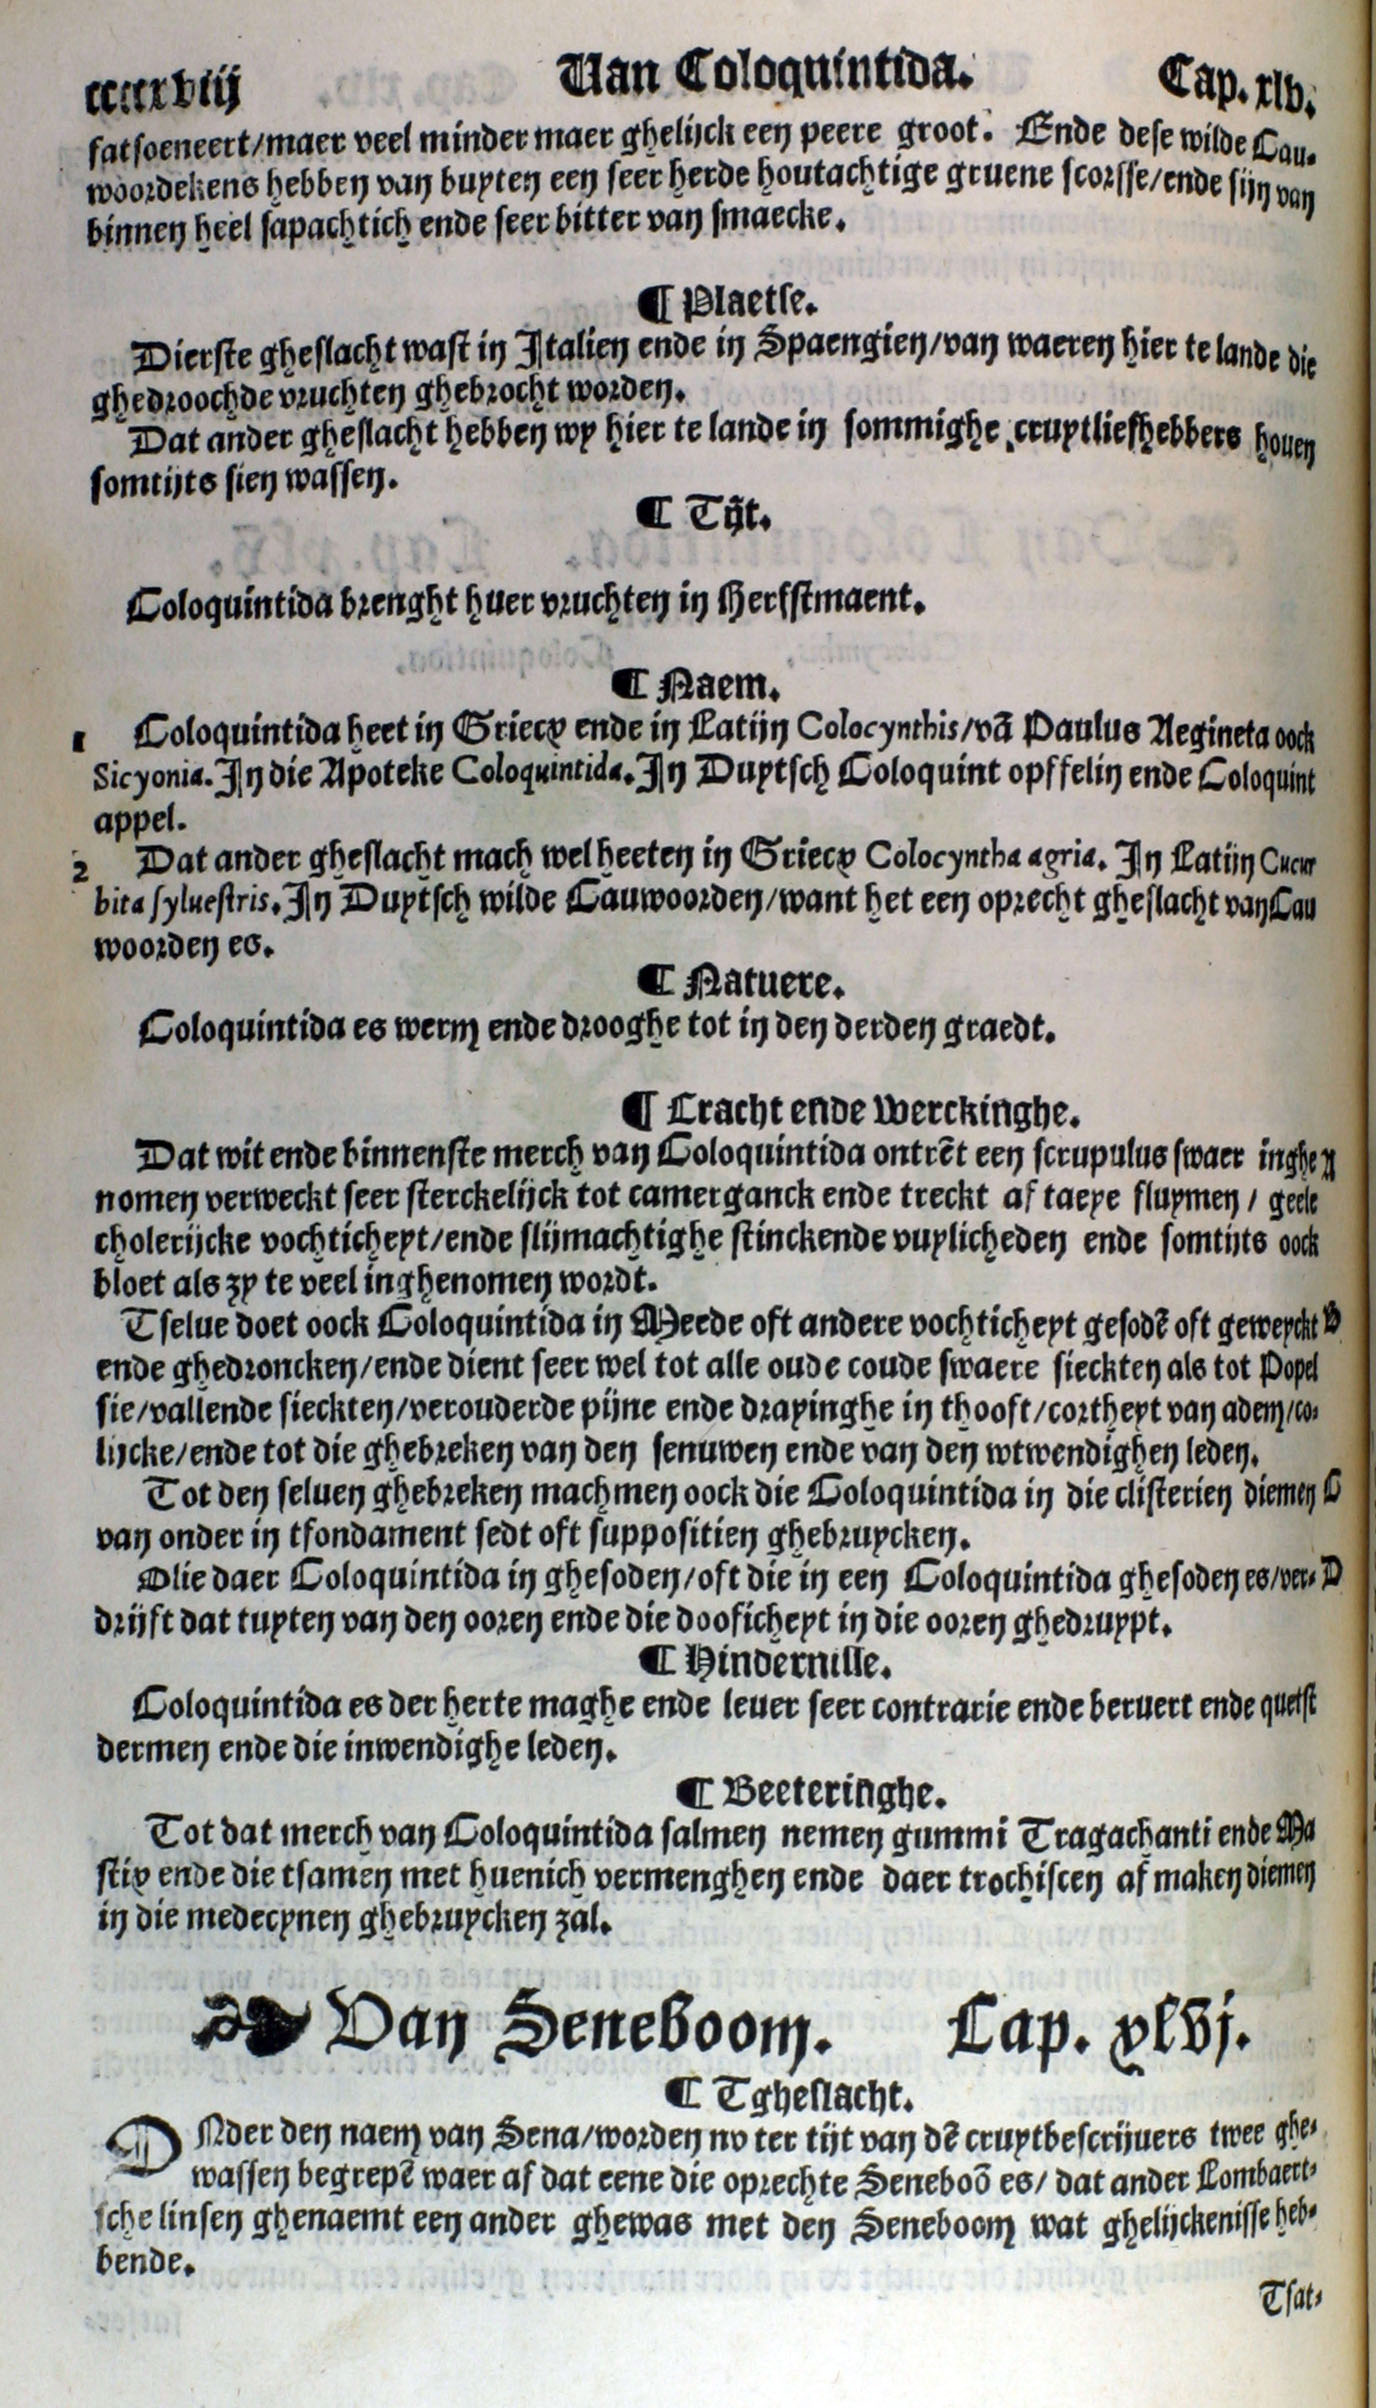 ccccxviij Van Coloquintida. Cap. xlv.
fatsoeneert/maer veel minder maer ghelijck een peere groot. Ende dese wilde Cau-
woordekens hebben van buyten een seer herde houtachtige gruene scorsse/ende sijn van
binnen heel sapachtich ende seer bitter van smaecke.
¶ Plaetse.
Dierste gheslacht wast in Italien ende in Spaengien/van waeren hier te lande die
ghedroochde vruchten ghebrocht worden.
Dat ander gheslacht hebben wy hier te lande in sommighe cruytliefhebbers houen
somtijts sien wassen.
¶ Tijt.
Coloquintida brenght huer vruchten in Herfstmaent.
¶ Naem.
1 Coloquintida heet in Griecx ende in Latijn Colocynthis/vā Paulus Aegineta oock
Sicyonia. In die Apoteke Coloquintida. In Duytsch Coloquint opffelin ende Coloquint
appel.
2 Dat ander gheslacht mach wel heeten in Griecx Colocyntha agria. In Latijn Cucur
bita syluestris. In Duytsch wilde Cauwoorden/want het een oprecht gheslacht van Cau
woorden es.
¶ Natuere.
Coloquintida es werm ende drooghe tot in den derden graedt.
¶ Cracht ende Werckinghe.
Dat wit ende binnenste merch van Coloquintida ontrēt een scrupulus swaer inghe A
nomen verweckt seer sterckelijck tot camerganck ende treckt af taeye fluymen / geele
cholerijcke vochticheyt/ende slijmachtighe stinckende vuylicheden ende somtijts oock
bloet als zy te veel inghenomen wordt.
Tselue doet oock Coloquintida in Meede oft andere vochticheyt gesodē oft geweyckt B
ende ghedroncken/ende dient seer wel tot alle oude coude swaere sieckten als tot Popel
sie/vallende sieckten/verouderde pijne ende drayinghe in thooft/cortheyt van adem/co-
lijcke/ende tot die ghebreken van den senuwen ende van den wtwendighen leden.
Tot den seluen ghebreken machmen oock die Coloquintida in die clisterien diemen C
van onder in tfondament sedt oft suppositien ghebruycken.
Olie daer Coloquintida in ghesoden/oft die in een Coloquintida ghesoden es/ver- D
drijft dat tuyten van den ooren ende die dooficheyt in die ooren ghedruypt.
¶ Hindernisse.
Coloquintida es der herte maghe ende leuer seer contrarie ende beruert ende quetst
dermen ende die inwendighe leden.
¶ Beeteringhe.
Tot dat merch van Coloquintida salmen nemen gummi Tragachanti ende Ma
stix ende die tsamen met huenich vermenghen ende daer trochiscen af maken diemen
in die medecynen ghebruycken zal.
Van Seneboom. Cap. xlvj.
¶ Tgheslacht.
ONder den naem van Sena/worden nv ter tijt van dē cruytbescrijuers twee ghe-
wassen begrepē waer af dat eene die oprechte Seneboō es/ dat ander Lombaert-
sche linsen ghenaemt een ander ghewas met den Seneboom wat ghelijckenisse heb-
bende.
Tsat-